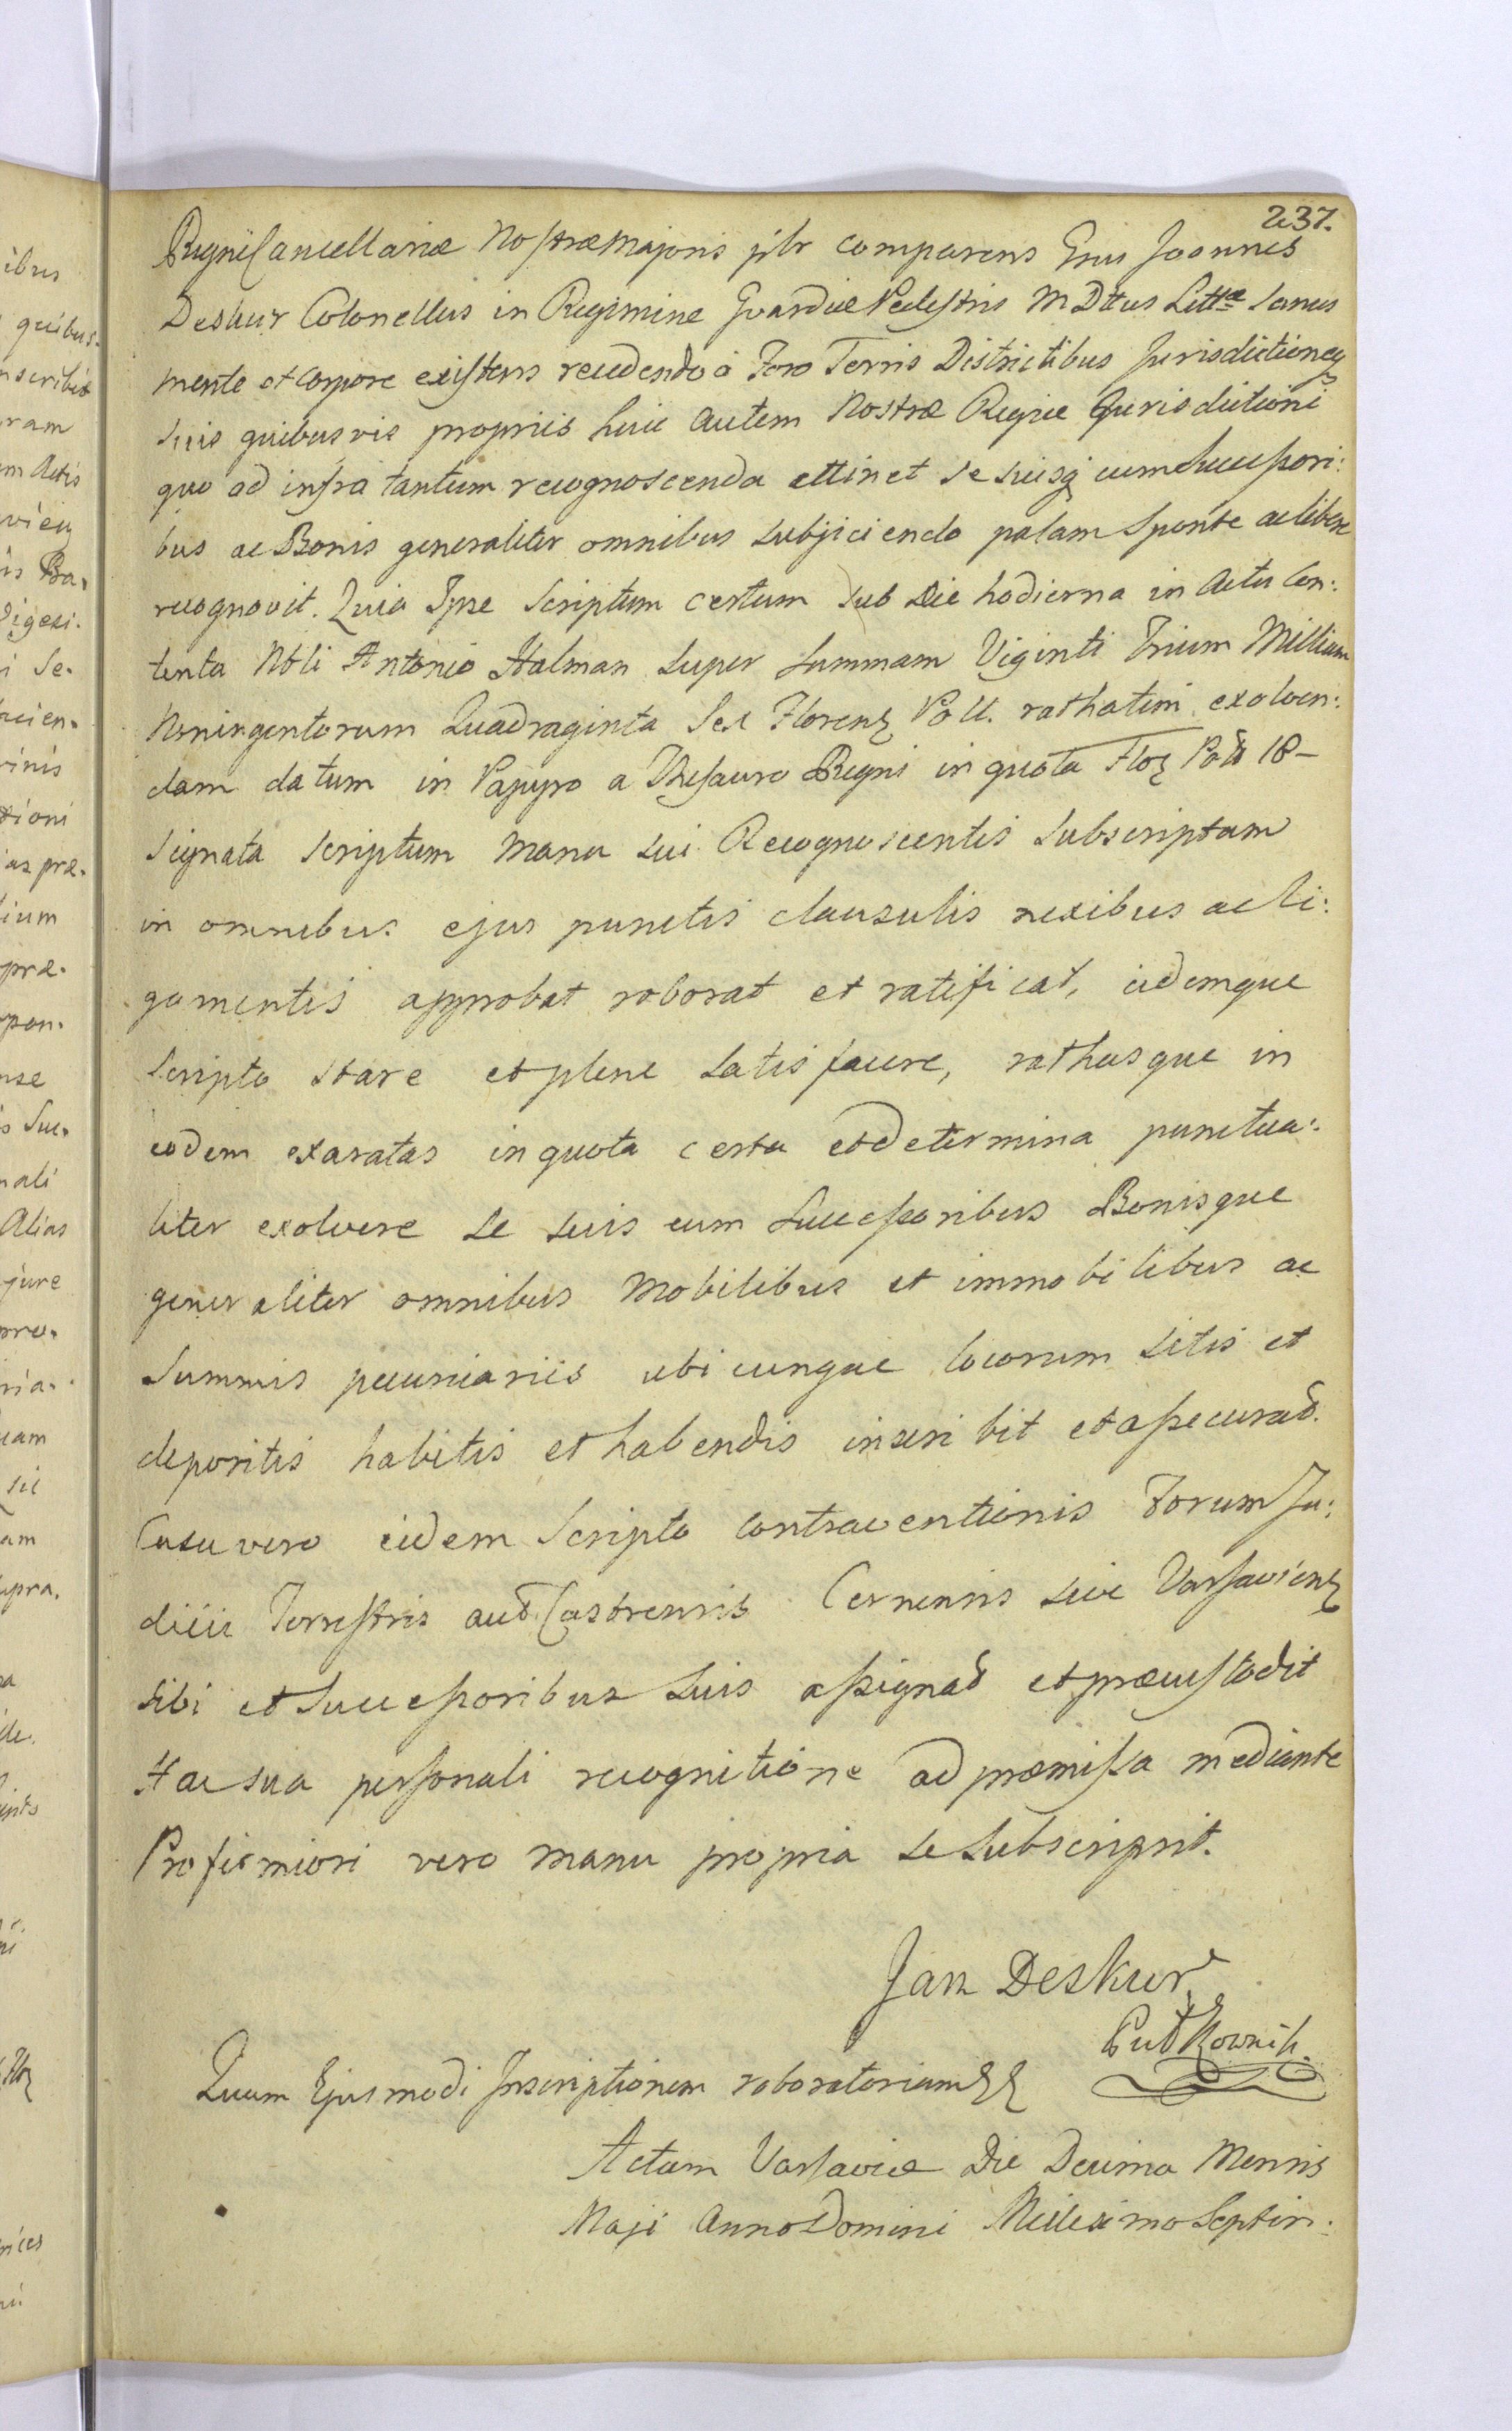 237.
Regni Cancellariæ Nostræ Majoris plr comparens Grus Joannes
Deskur Colonellus in Regimine Gvardiæ Pedestris M D Ltt̃us Littæ Sanus
mente et Corpore existens recedendo à Foro Terris Districtibus Jurisdictioneq
suis quibusvis propriis huic autem Nostræ Regiæ Jurisdictioni
quo ad infra tantum recognoscenda attinet se suisq cum Successori:
bus ac Bonis generaliter omnibus subjiciendo palam Sponte ac libere
recognovit. Quia Ipse Scriptum certum sub Die hodierna in Actu Con:
tenta Nbli Antonio Halman super Summam Viginti Trium Millium
Noningentorum Quadraginta Sex Florenz Poll. rathatim exolven:
dam datum in Papyro a Thesauro Regni in quota Floz Poll 18 –
signata scriptum manu sui Recognoscentis subscriptam
in omnibus ejus punctis clausulis nexibus ac li:
gamentis approbat roborat et ratificat, eidemque
scripto stare et plene satisfacere, rathasque in
eodem exaratas in quota certa et determina punctua:
liter exolvere se suis cum Successoribus Bonisque
generaliter omnibus Mobilibus et immobilibus ac
Summis pecuniariis ubicunque locorum sitis et
depositis habitis et habendis inscribit et assecurat.
Casu vero eidem Scripto contraventionis Forum Ju:
dicii Terrestris aut Castrensis Cernensis sive Varsavienz
sibi et Successoribus suis assignat et præcustodit
Hac sua personali recognitione ad præmissa mediante
Pro firmiori vero manu propria se subscripsit.
Jan Deskur
Putkownik.
Quam Ejusmodi Inscriptionem roboratoriam
Actum Varsaviæ Die Decima Mensis
Maji Anno Domini Millesimo Septin: